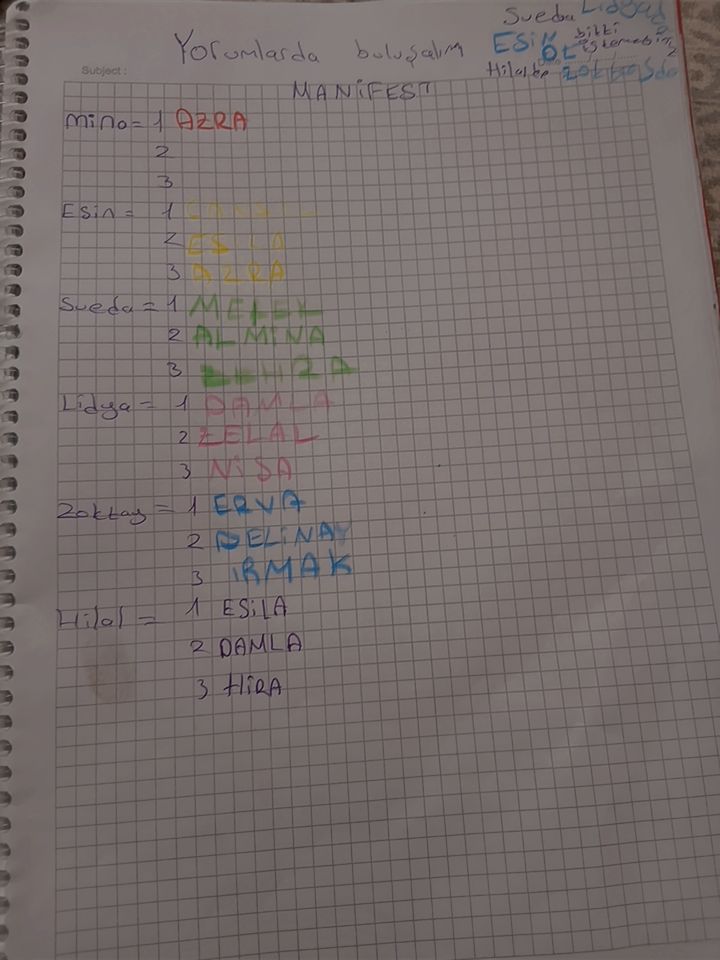 Sueda Lidya
Yorumlarda buluşalım
ESİN bitki
Ot istemebin
2
Subject :
Hilal
MANİFEST
Mino = 1 AZRA
2
3
Esin = 1
2 ESİLA
3 AZRA
Sueda = 1 MELEK
2 ALMİNA
3 ZEHRA
Lidya = 1 DAMLA
2 ZELAL
3 NİSA
Zoktay = 1 ERVA
2 PELİNAY
3 IRMAK
Hilal = 1 ESİLA
2 DAMLA
3 HİRA